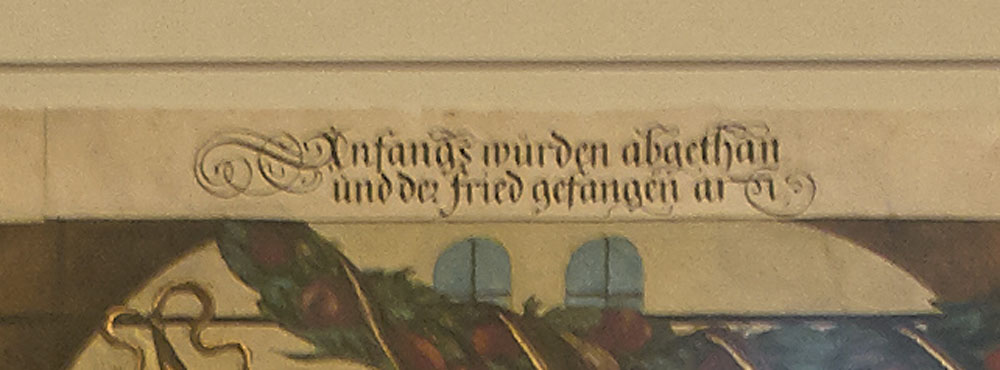 Anfangs wurden abgethan
und der fried gefangen an